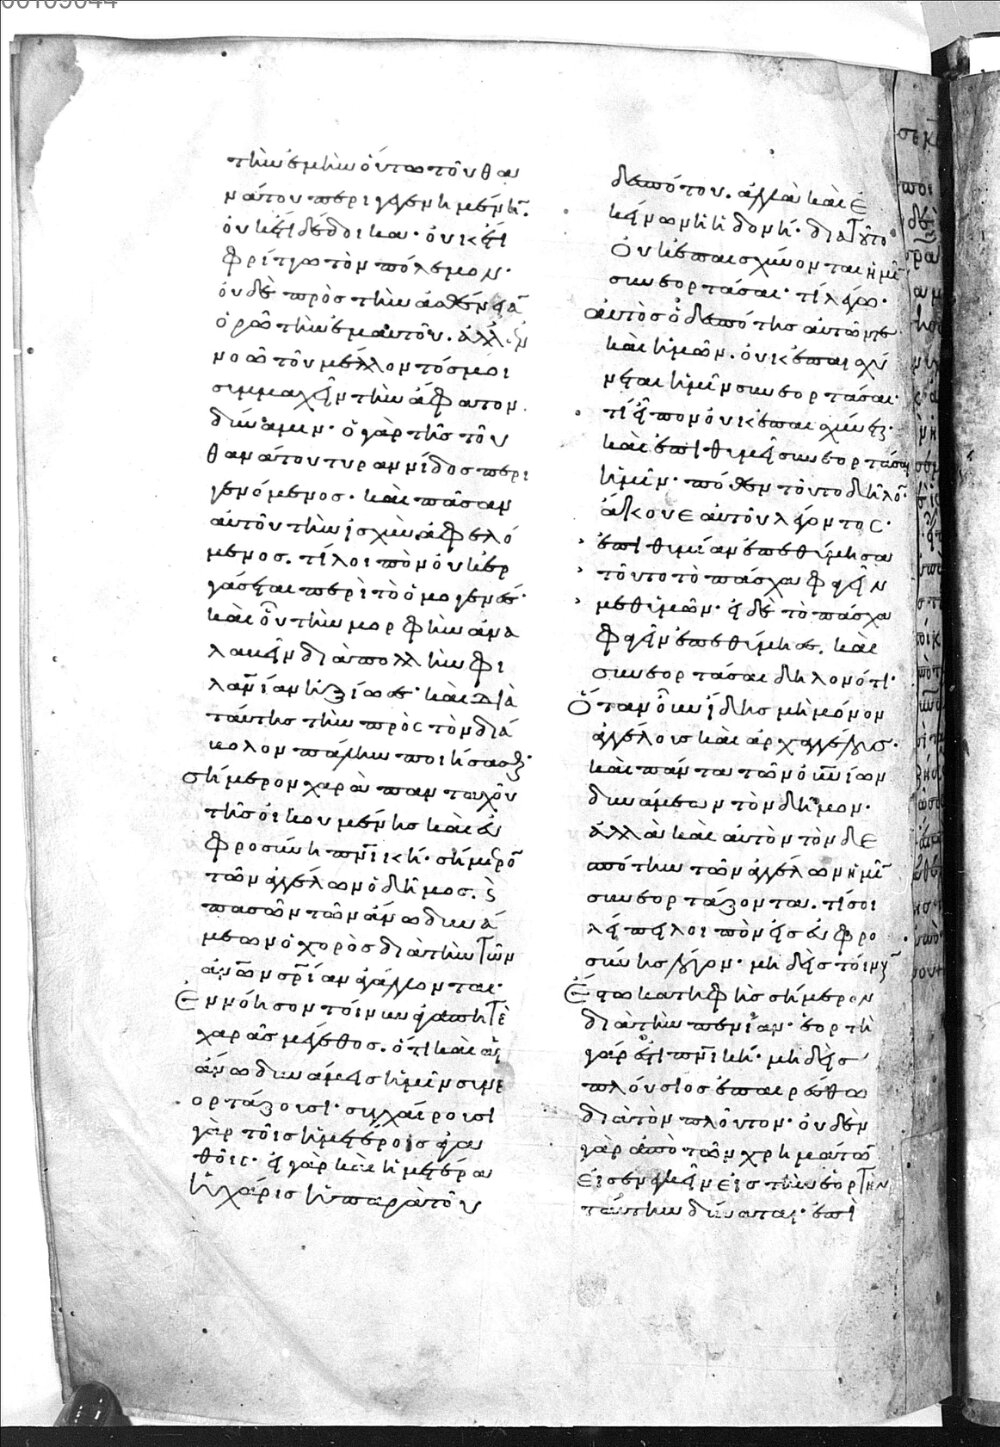 τὴν ἐμὴν ὄντως τοῦ θα
νάτου περιγεγενημένη.
οὐκέτι δέδοικα· οὐκέτι
φρίττω τὸν πόλεμον·
οὐδὲ πρὸς τὴν ἀσθένειαν
ὁρῶ τὴν ἐμαυτοῦ. ἀλλ' ἐν
νοῶ τοῦ μέλλοντός μοι
συμμαχεῖν τὴν ἄφατον
δύναμιν· ὁ γὰρ τῆς τοῦ
θανάτου τυραννίδος περι
γενόμενος· καὶ πᾶσαν
αὐτοῦ τὴν ἰσχὺν ἀφελό
μενος. τί λοιπὸν οὐκ ἐρ
γάσεται περὶ τὸ ὁμογενές·
καὶ οὗ τὴν μορφὴν ἀνα
λαβεῖν διὰ πολλὴν φι
λανίαν ἠξίωσε· καὶ διὰ
ταύτης τὴν πρὸς τὸν διά
βολον πάλην ποιήσασθαι·
Σήμερον χαρὰ πανταχοῦ
τῆς οἰκουμένης καὶ εὐ
φροσύνη πνική· σήμερον
τῶν ἀγγέλων ὁ δῆμος. καὶ
πασῶν τῶν ἄνω δυνά
μεων ὁ χορὸς διὰ τὴν τῶν
ἀνων σρίαν ἀγάλλονται·
Ἐννόησον τοίνυν ἀγαπητὲ
χαρᾶς μέγεθος. ὅτι καὶ αἱ
ἄνω δυνάμεις ἡμῖν συνε
ορτάζουσι· συγχαίρουσι
γὰρ τοῖς ἡμετέροις ἀγα
θοῖς· εἰ γὰρ καὶ ἡμετέρα
ἡ χάρις ἡ παρὰ τοῦ
δεσπότου. ἀλλὰ καὶ ἐ
κείνων ἡ ἡδονή· διὰ τοῦτο
Οὐκ ἐπαισχύνονται ἡμῖν
συνεορτάσαι· τί λέγω·
αὐτὸς ὁ δεσπότης αὐτῶν τε
καὶ ἡμῶν. οὐκ ἐπαισχύ
νεται ἡμῖν συνεορτάσαι·
τί εἶπον οὐκ ἐπαισχύνεται·
καὶ ἐπιθυμεῖ συνεορτάσαι
ἡμῖν· πόθεν τοῦτο δῆλον·
ἄκουε αὐτοῦ λέγοντος·
ἐπιθυμίαν ἐπεθύμησα
τοῦτο τὸ πάσχα φαγεῖν
μεθ' ὑμῶν· εἰ δὲ τὸ πάσχα
φαγεῖν ἐπεθύμησε. καὶ
συνεορτάσαι δηλονότι·
Ὅταν οὖν ἴδῃς μὴ μόνον
ἀγγέλους καὶ ἀρχαγγέλους·
καὶ πάντα τῶν οὐνίων
δυνάμεων τὸν δῆμον·
ἀλλὰ καὶ αὐτὸν τὸν δε
σπότην τῶν ἀγγέλων ἡμῖν
συνεορτάζοντα. τί σοι
λείπει λοιπὸν εἰς εὐφρο
σύνης λόγον· μηδεὶς τοίνυν
Ἔστω κατηφὴς σήμερον
διὰ τὴν πενίαν· ἑορτὴ
γάρ ἐστι πνική· μηδεὶς
πλούσιος ἐπαιρέσθω
διὰ τὸν πλοῦτον· οὐδὲν
γὰρ ἀπὸ τῶν χρημάτων
εἰσενεγκεῖν εἰς τὴν ἑορτὴν
ταύτην δύναται· ἐπὶ